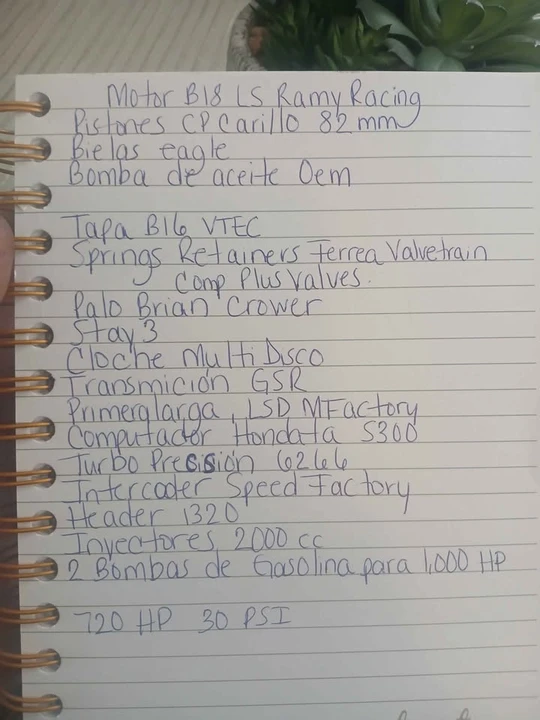 Motor B18 LS Ramy Racing
Pistones CP Carillo 82 mm
Bielas eagle
Bomba de aceite Oem
Tapa B16 VTEC
Springs Retainers Ferrea Valvetrain
Comp Plus Valves.
Palo Brian Crower
Stay 3
Cloche Multi Disco
Transmición GSR
Primera larga, LSD MFactory
Computador Hondata S300
Turbo Precisión 6266
Intercooler Speed Factory
Header 1320
Inyectores 2000 cc
2 Bombas de Gasolina para 1,000 HP
720 HP 30 PSI